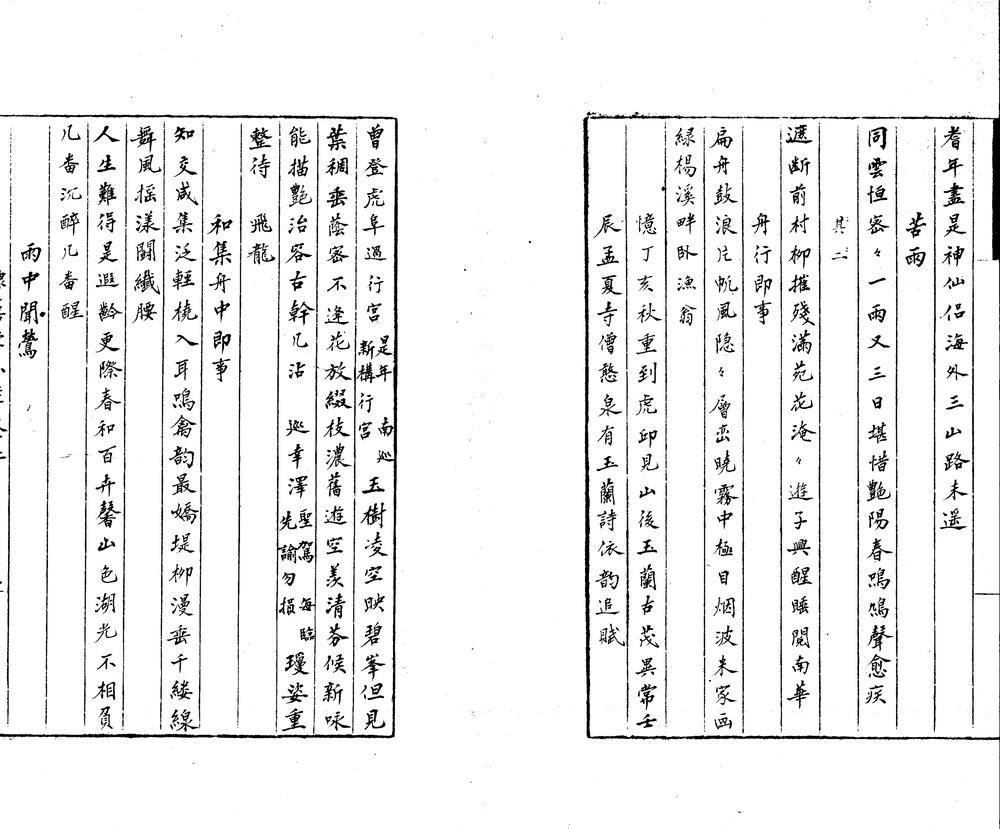 耆年盡是神仙侣海外三山路未遥
苦雨
同雲恒密々一雨又三日堪惜艷陽春鳴鳩聲愈疾
其二
遮断前村柳摧殘滿苑花淹々遊子興醒睡閲南華
舟行即事
扁舟鼓浪片帆風隐々層巒曉霧中極目烟波米家画
緑楊溪畔卧漁翁
憶丁亥秋重到虎邱見山後玉蘭古茂異常壬
辰孟夏寺僧憨泉有玉蘭詩依韵追賦
曾登虎阜過行宫是年南巡新構行宫玉樹凌空映碧峯但見
葉稠垂蔭密不逢花放綴枝濃舊遊空羡清芬候新咏
能描艷冶容古幹几沾巡幸澤聖駕每臨先諭勿損瓊姿重
整待飛龍
和集舟中即事
知交咸集泛輕橈入耳鳴禽韵最嬌堤柳漫垂千縷線
舞風摇漾鬪纖腰
人生難得是遐齡更際春和百卉馨山色湖光不相負
几畨沉醉几畨醒
雨中聞鶯